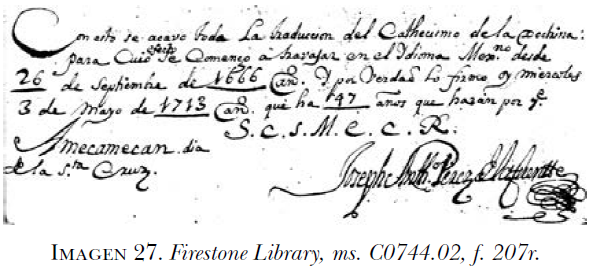 Con esto se acavo toda la traducion del Cathecismo de la Dochina:
para Cuio efecto se Començo á travajar en el Idioma Mexno desde
26 de Septiembe de 1666 años. Y por Verdad lo firmo oy miercoles
3 de Mayo de 1713 añs. que ha 147 años que hazán por ge.
S. C. S. M. E. C. R.
Amecamecan. dia
de la sta Cruz.
Joseph Antto Perez de la fuentte
IMAGEN 27. Firestone Library, ms. C0744.02, f. 207r.